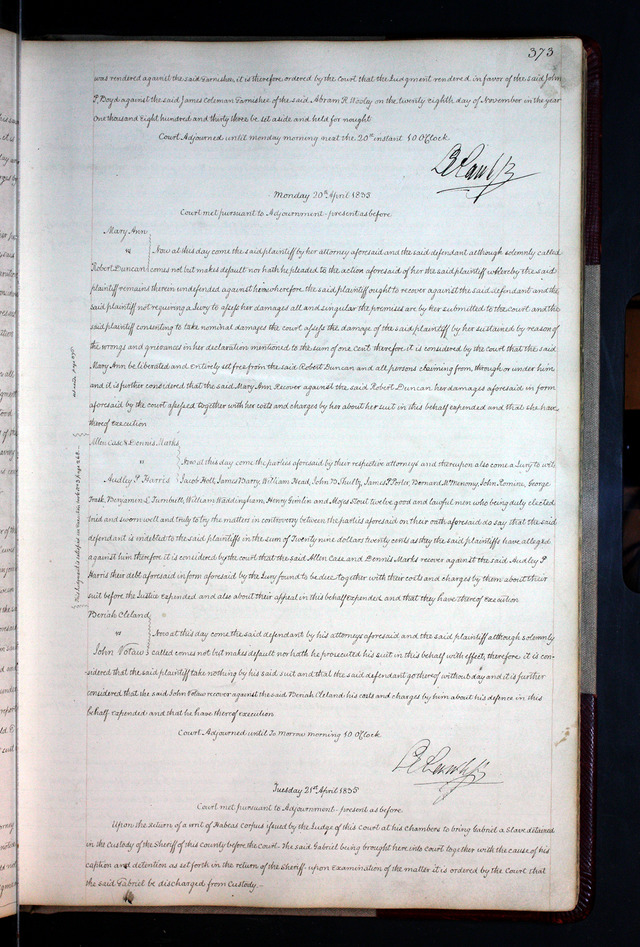 373
was rendered against the said Garnishee, it is therefore ordered by the Court that the Judgment rendered in favor of the said John
P. Boyd against the said James Coleman Garnishee of the said Abram R. Wooley on the twenty eighth day of November in the year
One thousand Eight hundred and thirty three be set aside and held for nought
Court Adjourned until monday morning next the 20th instant 10 O'Clock
Monday 20th April 1835
Court met pursuant to Adjournment - present as before
Mary Ann
vs
Now at this day come the said plaintiff by her attorney aforesaid and the said defendant although solemnly called
Robert Duncan comes not but makes default nor hath he pleaded to the action aforesaid of her the said plaintiff whereby the said
plaintiff remains therein undefended against him wherefore the said plaintiff ought to recover against the said defendant and the
said plaintiff not requiring a Jury to assess her damages all and singular the premises are by her submitted to the court and the
said plaintiff consenting to take nominal damages the court assess the damage of the said plaintiff by her sustained by reason of
the wrongs and grievances in her declaration mentioned to the sum of one cent therefore it is considered by the court that the said
Mary Ann be liberated and entirely set free from the said Robert Duncan and all persons claiming from, through or under him
and it is further considered that the said Mary Ann Recover against the said Robert Duncan her damages aforesaid in form
aforesaid by the court assessed together with her costs and charges by her about her suit in this behalf expended and that she have
thereof execution
Allen Case & Dennis Marks
vs
Now at this day come the parties aforesaid by their respective attorneys and thereupon also come a Jury to wit
Audley P Harris Jacob Holt, James Barry, William Head, John B Shultz, James P Porter, Bernard McMenomy, John Pomine, George
Trask, Benjamin L Turnbull, William Waddingham, Henry Gimlin and Moses Stout twelve good and lawful men who being duly elected
tried and sworn well and truly to try the matters in controversy between the parties aforesaid on their oath aforesaid do say that the said
defendant is indebted to the said plaintiffs in the sum of Twenty nine dollars twenty cents as they the said plaintiffs have alleged
against him therefore it is considered by the court that the said Allen Case and Dennis Marks recover against the said Audley P
Harris their debt aforesaid in form aforesaid by the Jury found to be due, together with their costs and charges by them about their
suit before the Justice Expended and also about their appeal in this behalf expended, and that they have thereof execution
Beriah Cleland
vs
Now at this day come the said defendant by his attorneys aforesaid and the said plaintiff although solemnly
John Votaw called comes not but makes default nor hath he prosecuted his suit in this behalf with effect, therefore it is con-
sidered that the said plaintiff take nothing by his said suit and that the said defendant go thereof without day and it is further
considered that the said John Votaw recover against the said Beriah Cleland his costs and charges by him about his defence in this
behalf expended and that he have thereof execution
Court Adjourned until To Morrow morning 10 O'Clock
Tuesday 21st April 1835
Court met pursuant to Adjournment - present as before
Upon the return of a writ of Habeas Corpus issued by the Judge of this Court at his Chambers to bring Gabriel a Slave detained
in the Custody of the Sheriff of this County before the Court. The said Gabriel being brought here into Court together with the cause of his
caption and detention as set forth in the return of the Sheriff upon Examination of the matter it is ordered by the Court that
the said Gabriel be discharged from Custody.